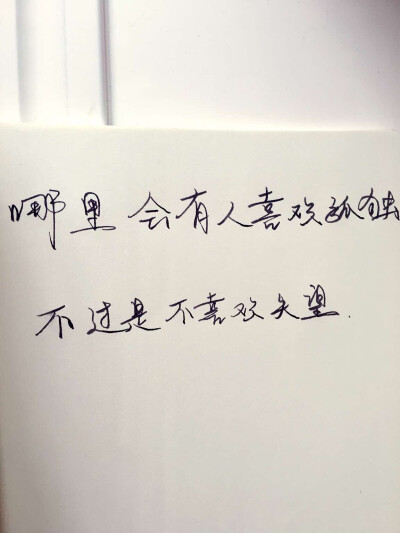 哪里会有人喜欢孤独
不过是不喜欢失望.